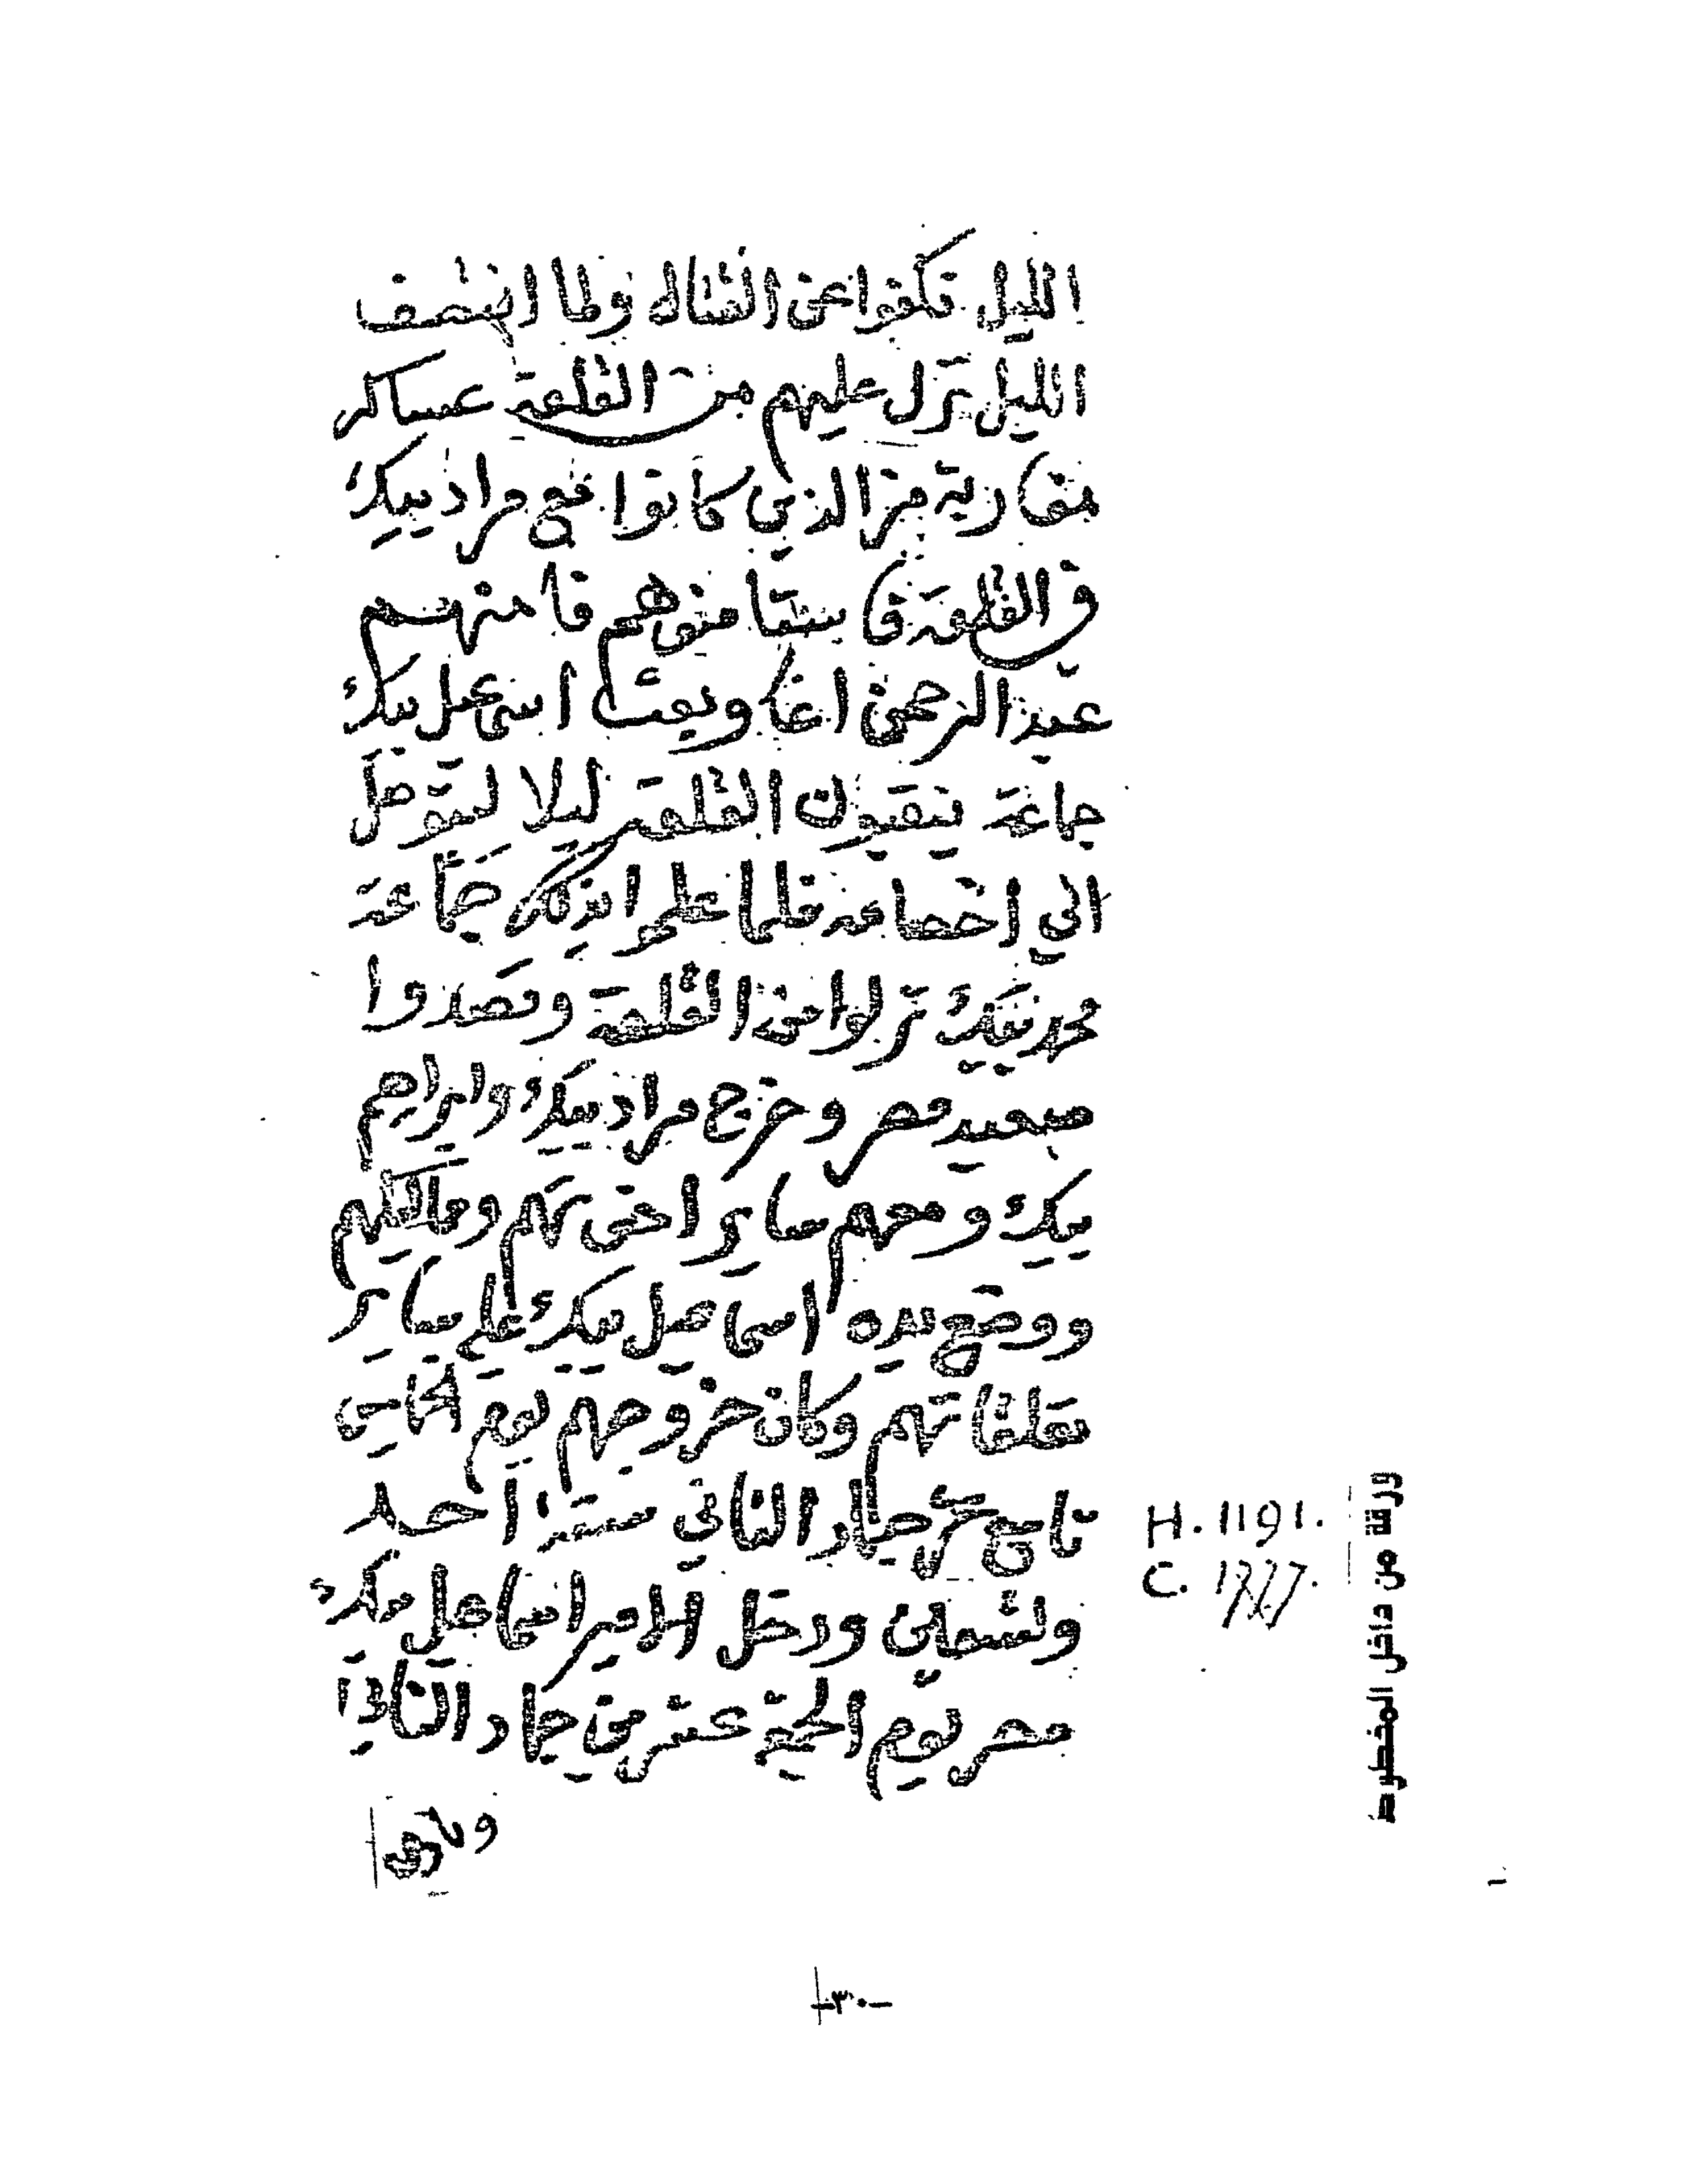 الليل فكفوا عن القتال ولما انتصف
الليل نزل عليهم من القلعة عساكر
مغاربة من الذين كانوا مع مراد بيك
في القلعة فاستقامنوهم فامنهم
عبد الرحمن اغا وبعث اسمعيل بيك
جماعة ينقبون القلعة ليلا ليتوصل
الي اخصامه فلما علموا بذلك جماعة
محمد بيك نزلوا من القلعة وقصدوا
صعيد مصر وخرج مراد بيك وابراهيم
بيك ومعهم ساير اخواتهم ومماليكهم
ووضع يده اسماعيل بيك علي ساير
تعلقاتهم وكان خروجهم يوم الخامس
تاسع عشر جماد الثاني سنة احد
وتسعين ودخل الامير اسماعيل بيك
مصر يوم الجمعة عشرين جماد الثاني
H. 1191.
C. 1777.
ورقة من داخل المخطوط
-٣٠-